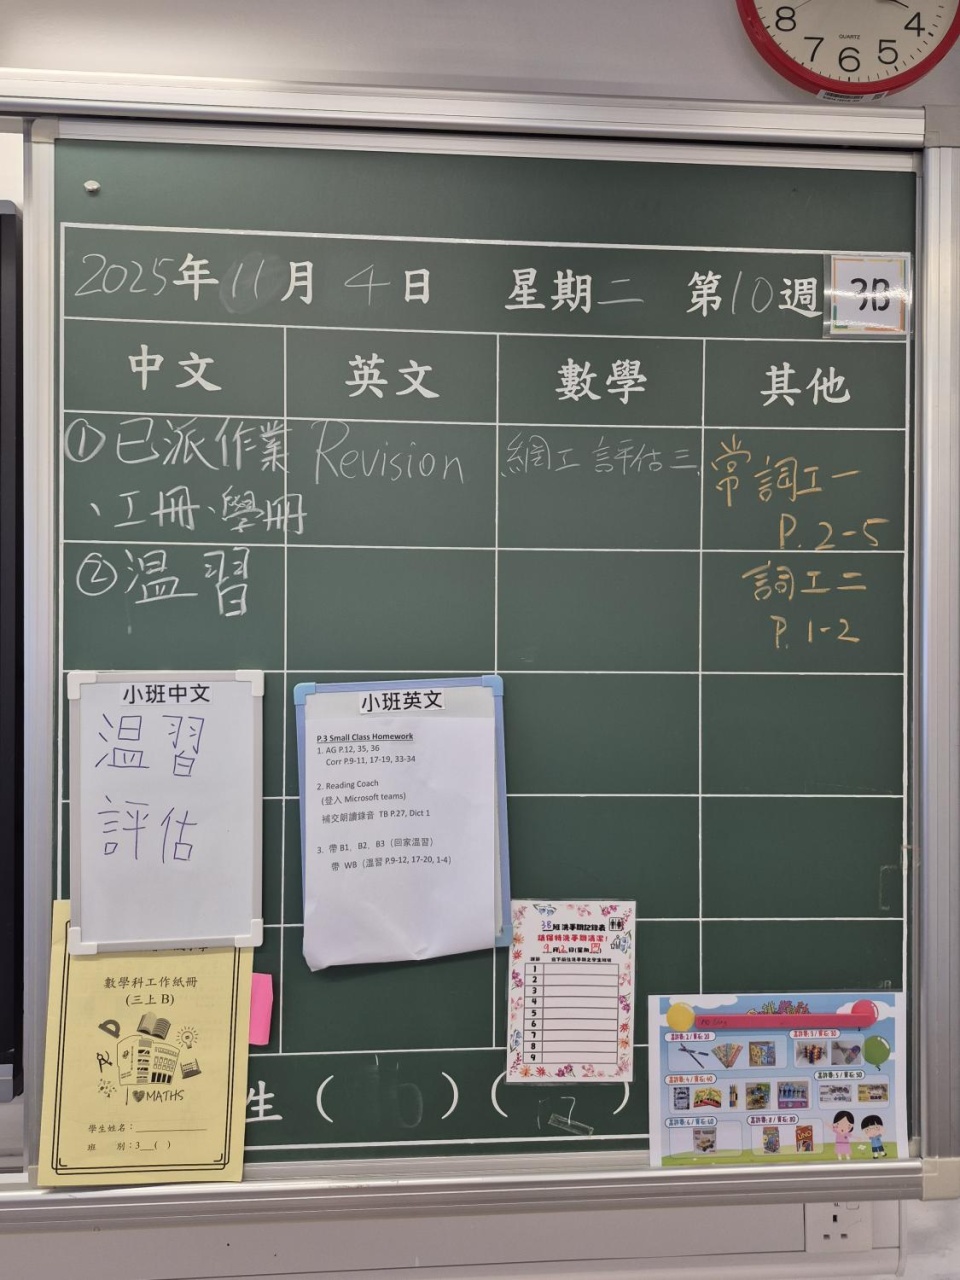 8 7 6 5 4
QUARTZ
2025年11月4日 星期二 第10週 3B
中文 英文 數學 其他
①已派作業
、工冊、學冊
②溫習
Revision
網工 評估三
常 詞工一
P.2-5
詞工二
P.1-2
小班中文
溫習
評估
小班英文
P.3 Small Class Homework
1. AG P.12, 35, 36
Corr P.9-11, 17-19, 33-34
2. Reading Coach
(登入 Microsoft teams)
補交朗讀錄音 TB P.27, Dict 1
3. 帶 B1、B2、B3（回家溫習）
帶 WB（溫習 P.9-12, 17-20, 1-4）
數學科工作紙冊
(三上 B)
I MATHS
學生姓名：
班 別：3__( )
生 ( ) ( )
3B班 洗手間記錄表
請保持洗手間清潔！
1
2
3
4
5
6
7
8
9
UNO